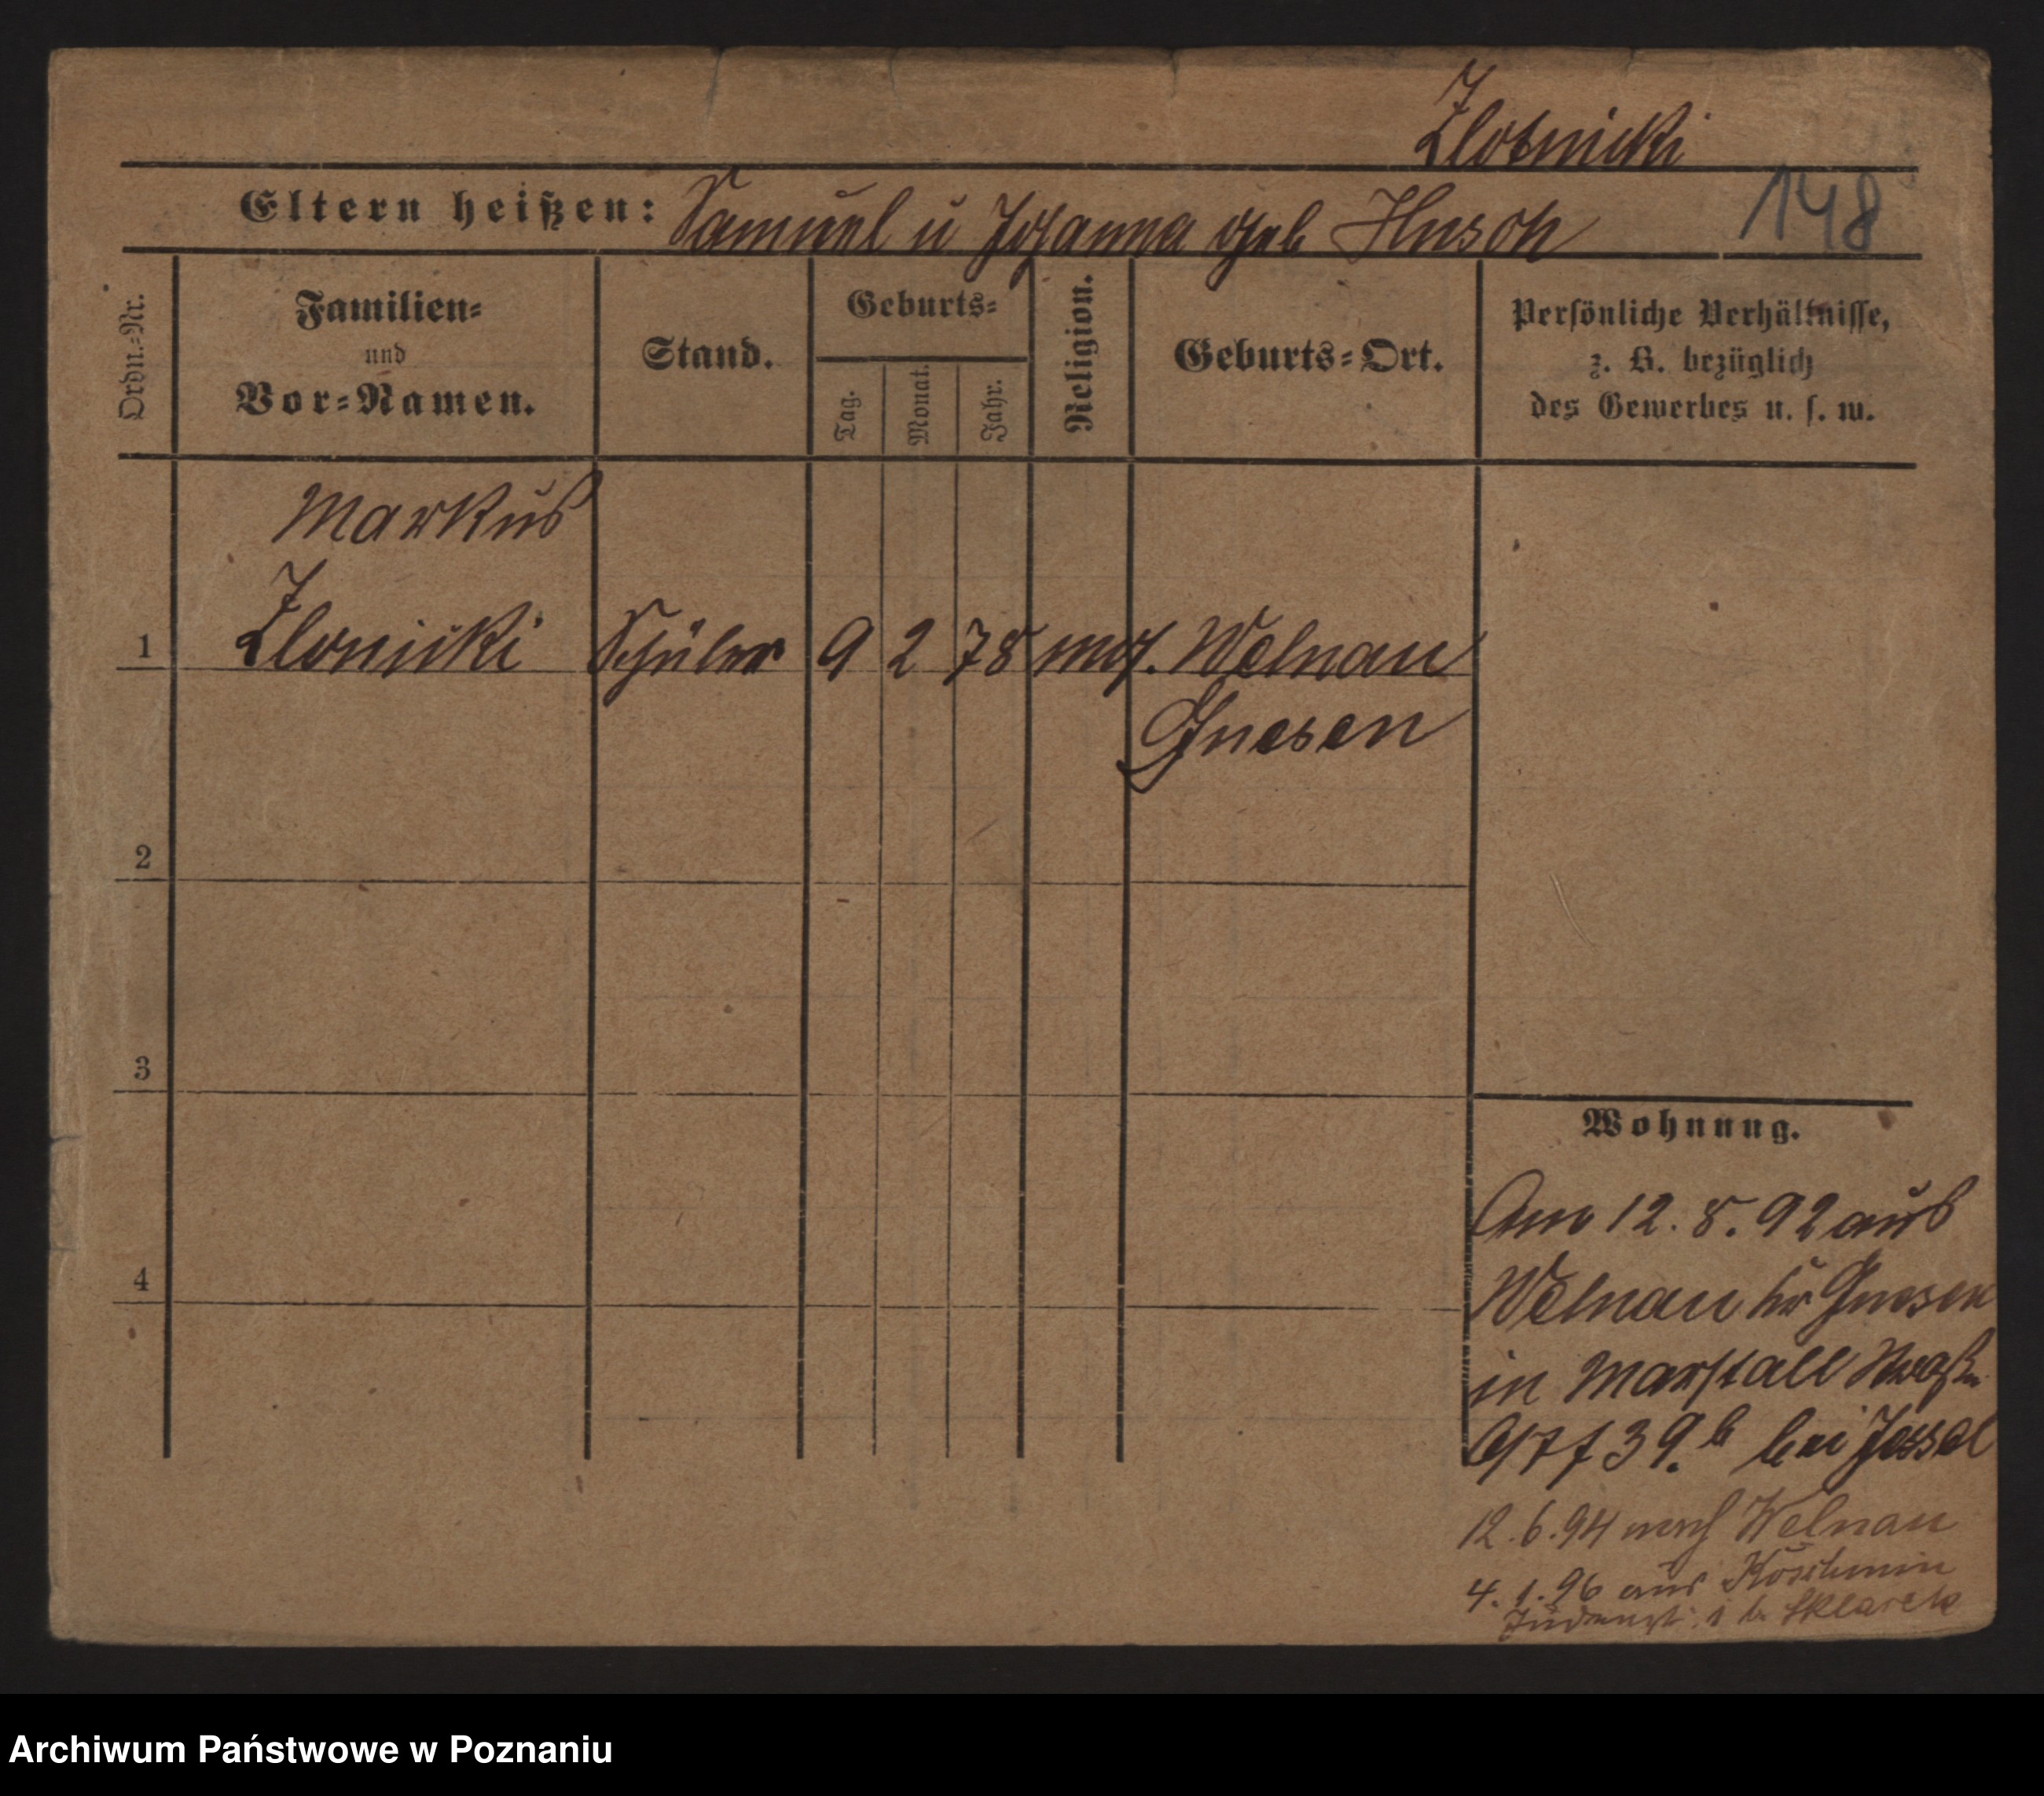 Zlotnicki
Eltern heißen: Samuel u Johanna geb Hirsch
148
Ordn.-Nr.
Familien-
und
Vor-Namen.
Stand.
Geburts-
Tag.
Monat.
Jahr.
Religion.
Geburts-Ort.
Persönliche Verhältnisse,
z. B. bezüglich
des Gewerbes u. s. w.
Markus
1 Zlonicki Schüler 9 2 78 mos. Welnau
Gnesen
2
3
4
Wohnung.
Am 12. 8. 92 aus
Welnau Kr Gnesen
in Marstall Straße
39.b bei Jossel
12.6.94 nach Welnau
4.1.96 aus Koschmin
Judenstr. 1 b. Sklarek
Archiwum Państwowe w Poznaniu